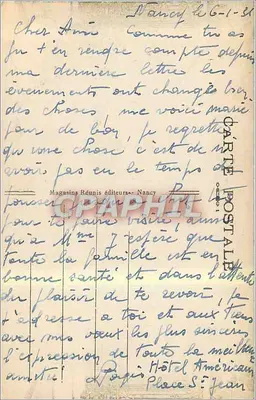 Nancy le 6-1-31
Cher Ami comme tu as
pu t'en rendre compte depuis
ma dernière lettre les
évènements ont changés bien
des choses me voici marié
pour de bon, je regrette
qu'une chose c'est de ne
avoir pas eu le temps de
pousser
pour te faire visite, ainsi
qu'a Mme J'espère que
toute la famille est en
bonne santé et dans l'attente
du plaisir de te revoir, je
t'adresse a toi et aux tiens
avec mes vœux les plus sincères
l'expression de toute la meilleure
amitié
Hôtel Américain
Place St Jean
CARTE POSTALE
Magasins Réunis éditeurs.. Nancy
CPAPHIL